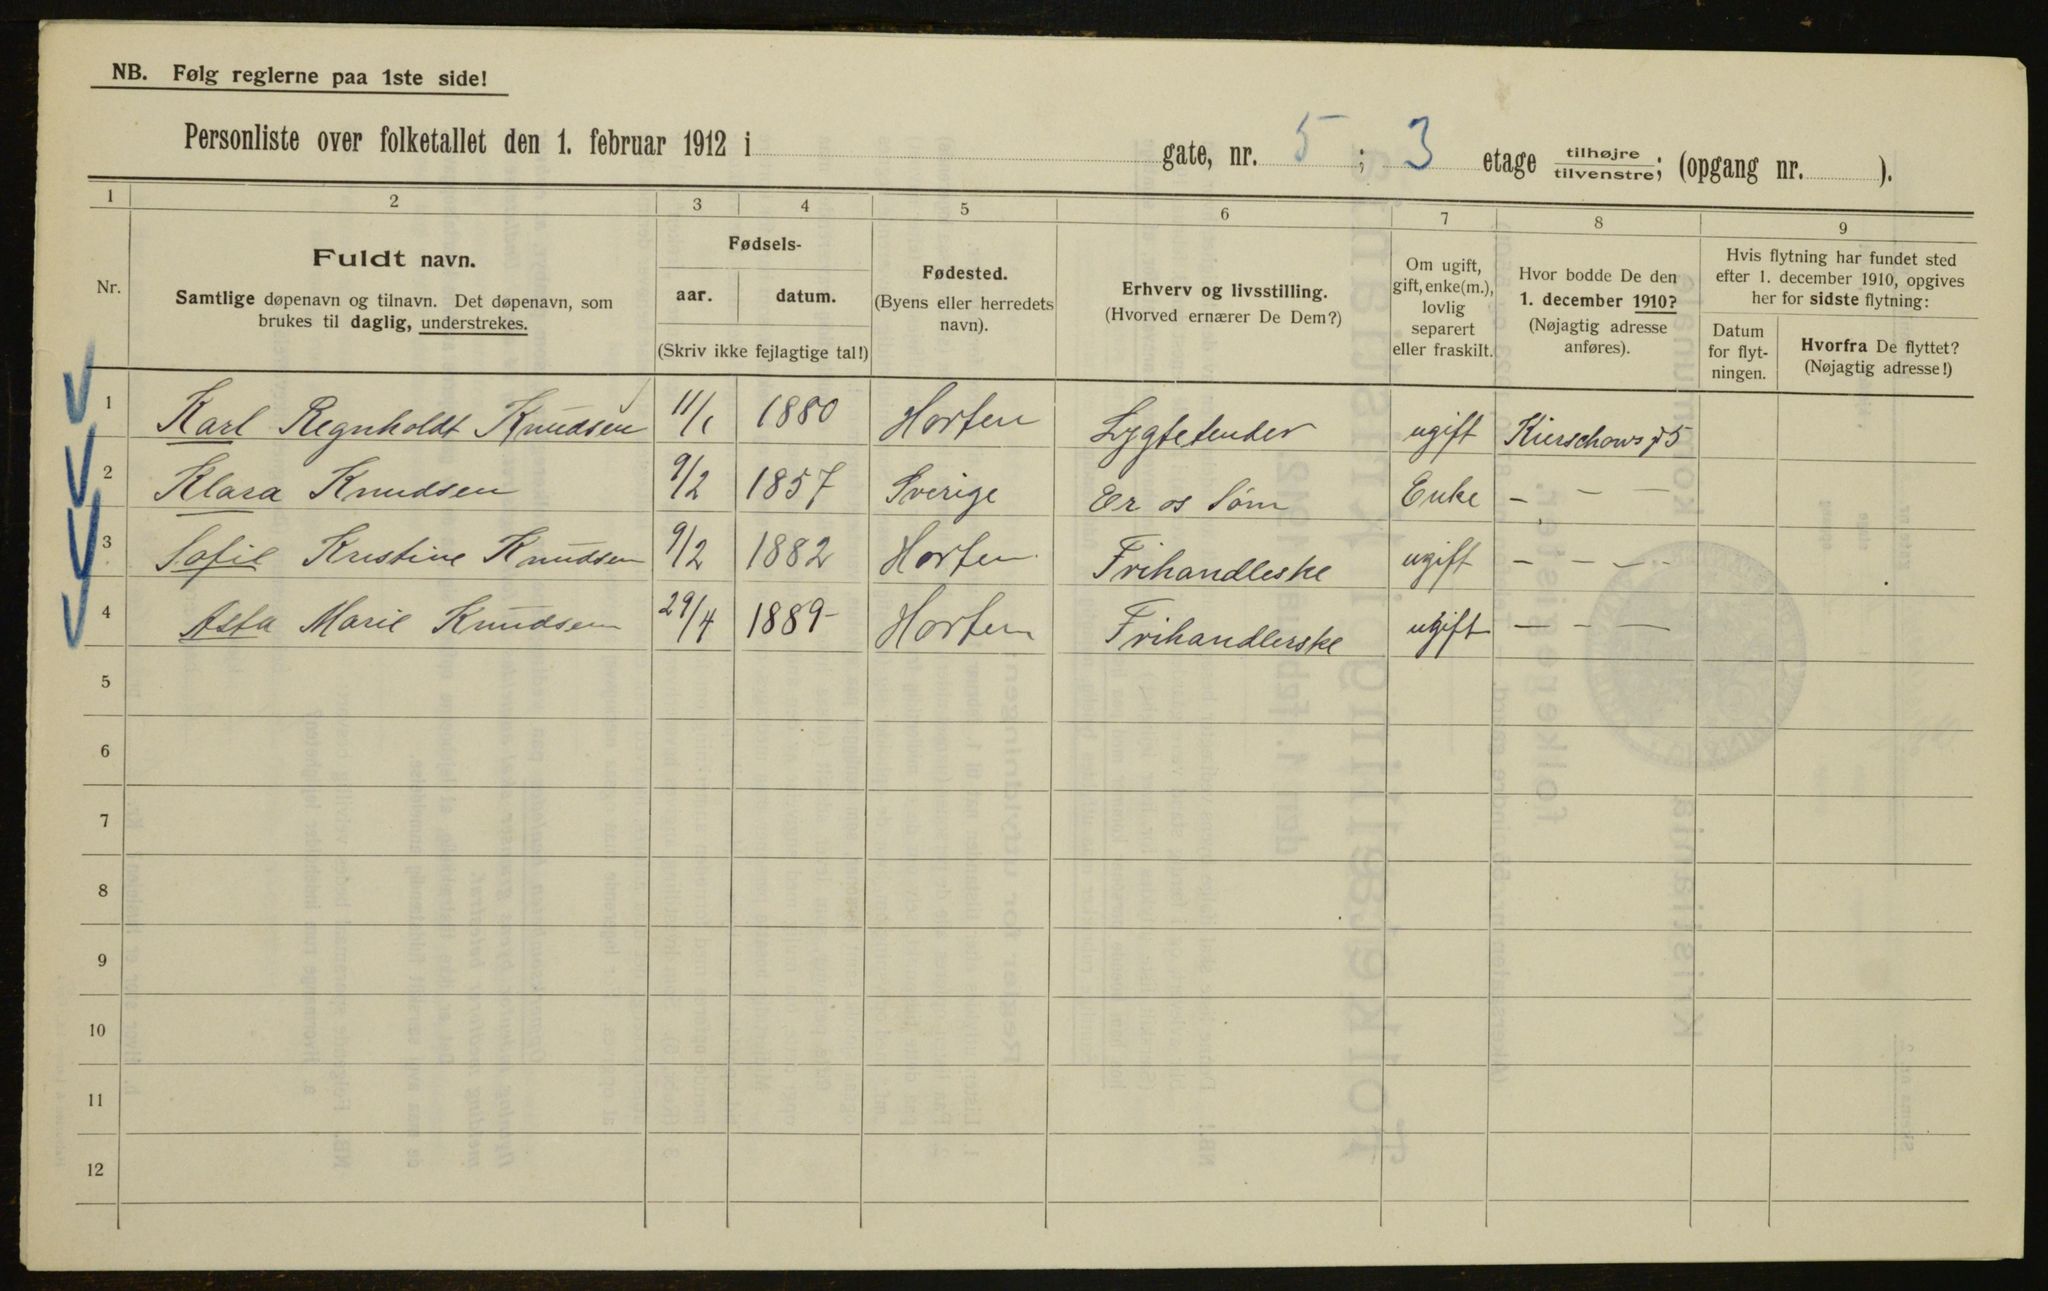 NB. Følg reglerne paa 1ste side!
Personliste over folketallet den 1. februar 1912 i gate, nr. 5 ; 3 etage tilhøjre/tilvenstre; (opgang nr. ).
1 2 3 4 5 6 7 8 9
Nr.
Fuldt navn.
Samtlige døpenavn og tilnavn. Det døpenavn, som
brukes til daglig, understrekes.
Fødsels-
aar. datum.
(Skriv ikke fejlagtige tal!)
Fødested.
(Byens eller herredets
navn).
Erhverv og livsstilling.
(Hvorved ernærer De Dem?)
Om ugift,
gift, enke(m.),
lovlig
separert
eller fraskilt.
Hvor bodde De den
1. december 1910?
(Nøjagtig adresse
anføres).
Hvis flytning har fundet sted
efter 1. december 1910, opgives
her for sidste flytning:
Datum
for flyt-
ningen.
Hvorfra De flyttet?
(Nøjagtig adresse!)
1 Karl Regnholdt Knudsen 11/1 1880 Horten Lygtetender ugift Kierschows g 5
2 Klara Knudsen 9/2 1857 Sverige Er os Søm Enke - - -
3 Sofie Kristine Knudsen 9/2 1882 Horten Frihandleske ugift - - -
4 Asta Marie Knudsen 29/4 1889 Horten Frihandlerske ugift - - -
5
6
7
8
9
10
11
12